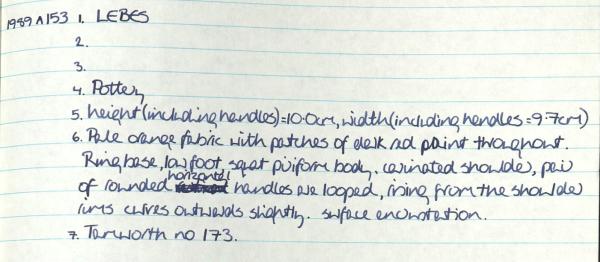 1989 A 153 1. LEBES
2.
3.
4. Pottery
5. height (including handles) = 10.0cm, width (including handles = 9.7cm)
6. Pale orange fabric with patches of dark red paint throughout.
Ring base, low foot, squat piriform body. carinated shoulder, pair
of rounded horizontal handles are looped, rising from the shoulder
rims curves outwards slightly. surface encrustation.
7. Tamworth no 173.